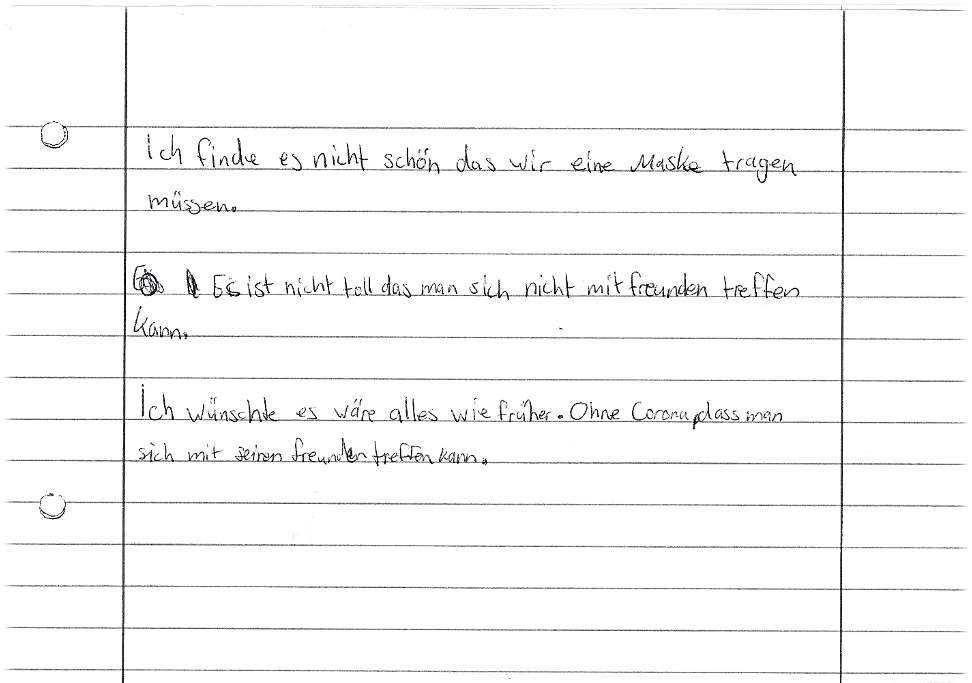 Ich finde es nicht schön das wir eine Maske tragen
müssen.
Es ist nicht toll das man sich nicht mit freunden treffen
kann.
Ich wünschte es wäre alles wie früher. Ohne Corona, dass man
sich mit seinen freunden treffen kann.